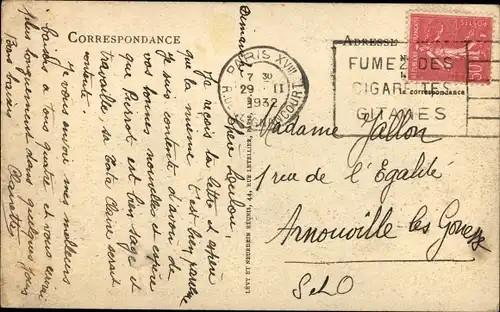 CORRESPONDANCE
Dimanche
Chère Loulou,
J'ai reçu ta lettre et espère
que la mienne t'est bien parvenue
Je suis contente d'avoir de
vos bonnes nouvelles et espère
que Pierrot est bien sage et
travaille, sa Tata Claire serait
contente
Je vous envoi mes meilleurs
baisers à tous quatre et vous écrirai
plus longuement dans quelques jours
Bons baisers
Clairette
LEVY ET NEURDEIN REUNIS, 44, RUE LETELLIER, PARIS
PARIS XVIII
7 30
29 II
1932
ADRESSE
FUMEZ DES
CIGARETTES
GITANES
correspondance
POSTES
50c
Madame Jallon
1 rue de l'Egalité
Arnouville les Gonesse
S et O